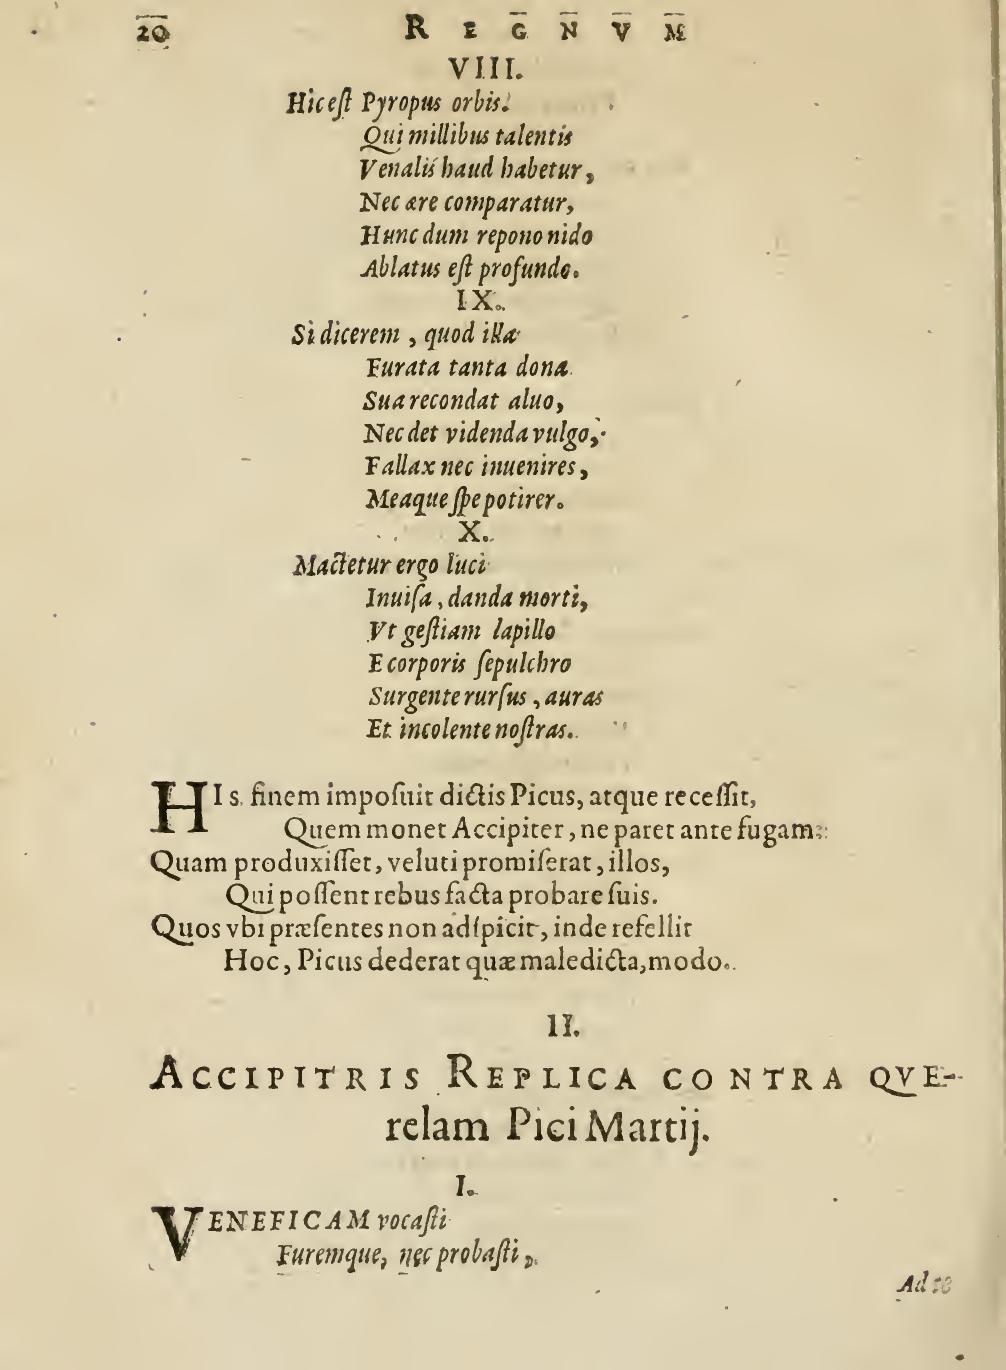 20 REGNVM
VIII.
Hic eſt Pyropus orbis.
Qui millibus talentis
Venalis haud habetur,
Nec ære comparatur,
Hunc dum repono nido
Ablatus eſt profundo.
IX.
Si dicerem, quod illa
Furata tanta dona
Sua recondat aluo,
Nec det videnda vulgo,
Fallax nec inuenires,
Meaque ſpe potirer.
X.
Mactetur ergo luci
Inuiſa, danda morti,
Vt geſtiam lapillo
E corporis ſepulchro
Surgente rurſus, auras
Et incolente noſtras.
HIs finem impoſuit dictis Picus, atque receſſit,
Quem monet Accipiter, ne paret ante fugam:
Quam produxiſſet, veluti promiſerat, illos,
Qui poſſent rebus facta probare ſuis.
Quos vbi præſentes non adſpicit, inde refellit
Hoc, Picus dederat quæ maledicta, modo.
II.
ACCIPITRIS REPLICA CONTRA QVE-
relam Pici Martij.
I.
VENEFICAM vocaſti
Furemque, nec probaſti,
Ad te